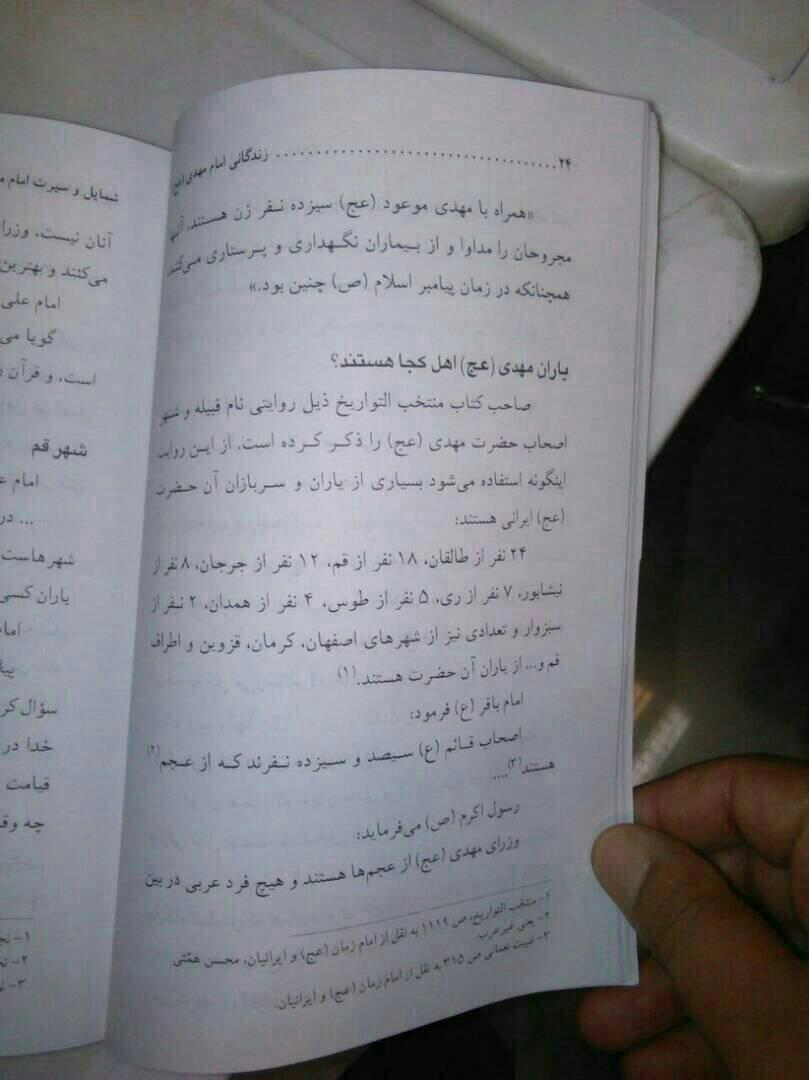 ۲۴ .................................... زندگانی امام مهدی (عج)
«همراه با مهدی موعود (عج) سیزده نفر زن هستند. آنها
مجروحان را مداوا و از بیماران نگهداری و پرستاری می‌کنند
همچنانکه در زمان پیامبر اسلام (ص) چنین بود.»
یاران مهدی (عج) اهل کجا هستند؟
صاحب کتاب منتخب التواریخ ذیل روایتی نام قبیله و شهر
اصحاب حضرت مهدی (عج) را ذکر کرده است. از این روایت
اینگونه استفاده می‌شود بسیاری از یاران و سربازان آن حضرت
(عج) ایرانی هستند:
۲۴ نفر از طالقان، ۱۸ نفر از قم، ۱۲ نفر از جرجان، ۸ نفر از
نیشابور، ۷ نفر از ری، ۵ نفر از طوس، ۴ نفر از همدان، ۲ نفر از
سبزوار و تعدادی نیز از شهرهای اصفهان، کرمان، قزوین و اطراف
قم و... از یاران آن حضرت هستند.(۱)
امام باقر (ع) فرمود:
اصحاب قائم (ع) سیصد و سیزده نفرند که از عجم(۲)
هستند(۳)....
رسول اکرم (ص) می‌فرماید:
وزرای مهدی (عج) از عجم‌ها هستند و هیچ فرد عربی در بین
۱- منتخب التواریخ، ص ۱۱۱۹ به نقل از امام زمان (عج) و ایرانیان، محسن همّتی
۲- یعنی غیرعرب.
۳- غیبت نعمانی ص ۳۱۵ به نقل از امام زمان (عج) و ایرانیان.
شمایل و سیرت امام
آنان نیست. وزرا
می‌کنند و بهترین
امام علی
گویا می
است. و قرآن
شهر قم
امام
... در
شهرهاست
یاران کسی
امام
پیا
سؤال کر
خدا در
قیامت
چه وقت
۱- نج
۲-
۳-